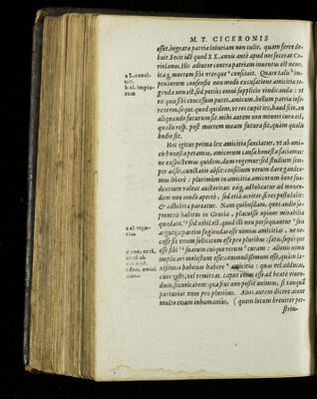 M. T. CICERONIS
esset, ingratæ patriæ iniuriam non tulit, quam ferre de
buit: fecit idē quod XX. annis antè apud nos fecerat Co
riolanus. His adiutor contra patriam inuentus est nemo,
itaq; mortem sibi vterque consciuit. Quare talis im-
proborum consensio non modo excusatione amicitiæ te-
genda non est, sed potius omni supplicio vindicanda: vt
ne quis sibi concessum putet, amicum, bellum patriæ infe-
rentem, sequi. quod quidem, vt res cœpit ire, haud scio, an
aliquando futurum sit. mihi autem non minori curæ est,
qualis resp. post mortem meam futura sit, quàm qualis
hodie sit.
Hæc igitur prima lex amicitiæ sanciatur, vt ab ami-
cis honesta petamus, amicorum causa honesta faciamus:
ne exspectemus quidem, dum rogemur: sed studium sem-
per adsit, cunctatio absit: consilium verum dare gaudea-
mus liberè: plurimùm in amicitia amicorum bene sua-
dentium valeat auctoritas: eaq; adhibeatur ad monen-
dum non modò apertè, sed etiā acriter, si res postulabit:
& adhibitæ pareatur. Nam quibusdam, quos audio sa-
pientes habitos in Græcia, placuisse opinor mirabilia
quædam. sed nihil est, quod illi non persequantur suis
argutijs: partim fugiendas esse nimias amicitias, ne ne-
cesse sit vnum sollicitum esse pro pluribus: satis, superque
esse sibi suarum cuique rerum curam: alienis nimis
implicari molestum esse: commodissimum esse, quàm la-
xissimas habenas habere amicitiæ: quas vel adducas,
cùm velis, vel remittas. caput enim esse ad beatè viuen-
dum, securitatem: qua frui non possit animus, si tanquā
parturiat vnus pro pluribus. Alios autem dicere aiunt
multo etiam inhumanius, (quem locum breuiter per-
strin-